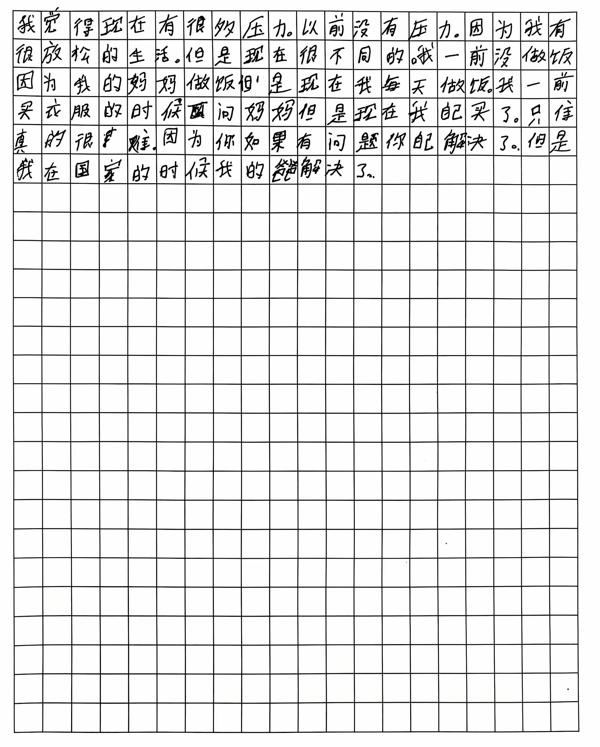 我觉得现在有很多压力。以前没有压力。因为我有
很放松的生活。但是现在很不同的。我一前没做饭
因为我的妈妈做饭但是现在我每天做饭。我一前
买衣服的时候问妈妈但是现在我自己买了。只住
真的很难。因为你如果有问题你自己解决了。但是
我在国家的时候我的爸爸解决了。